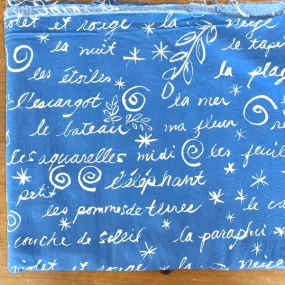 violet et rouge la neige
la nuit le tapi
les étoiles la plag
l'escargot la mer
le bateau ma fleur
les aquarelles midi les feuil
petit l'éléphant
les pommes de terres le ca
couche de soleil la paraplui
violet et rouge la neige